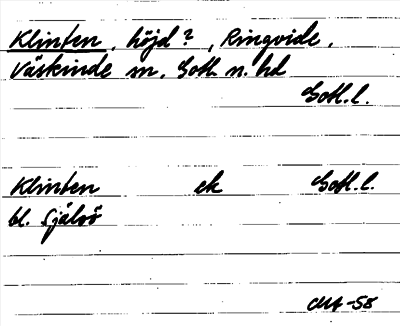 Klinten, höjd?, Ringvide,
Väskinde sn, Gotl. n. hd
Gotl. l.
Klinten ek Gotl. l.
bl. Själsö